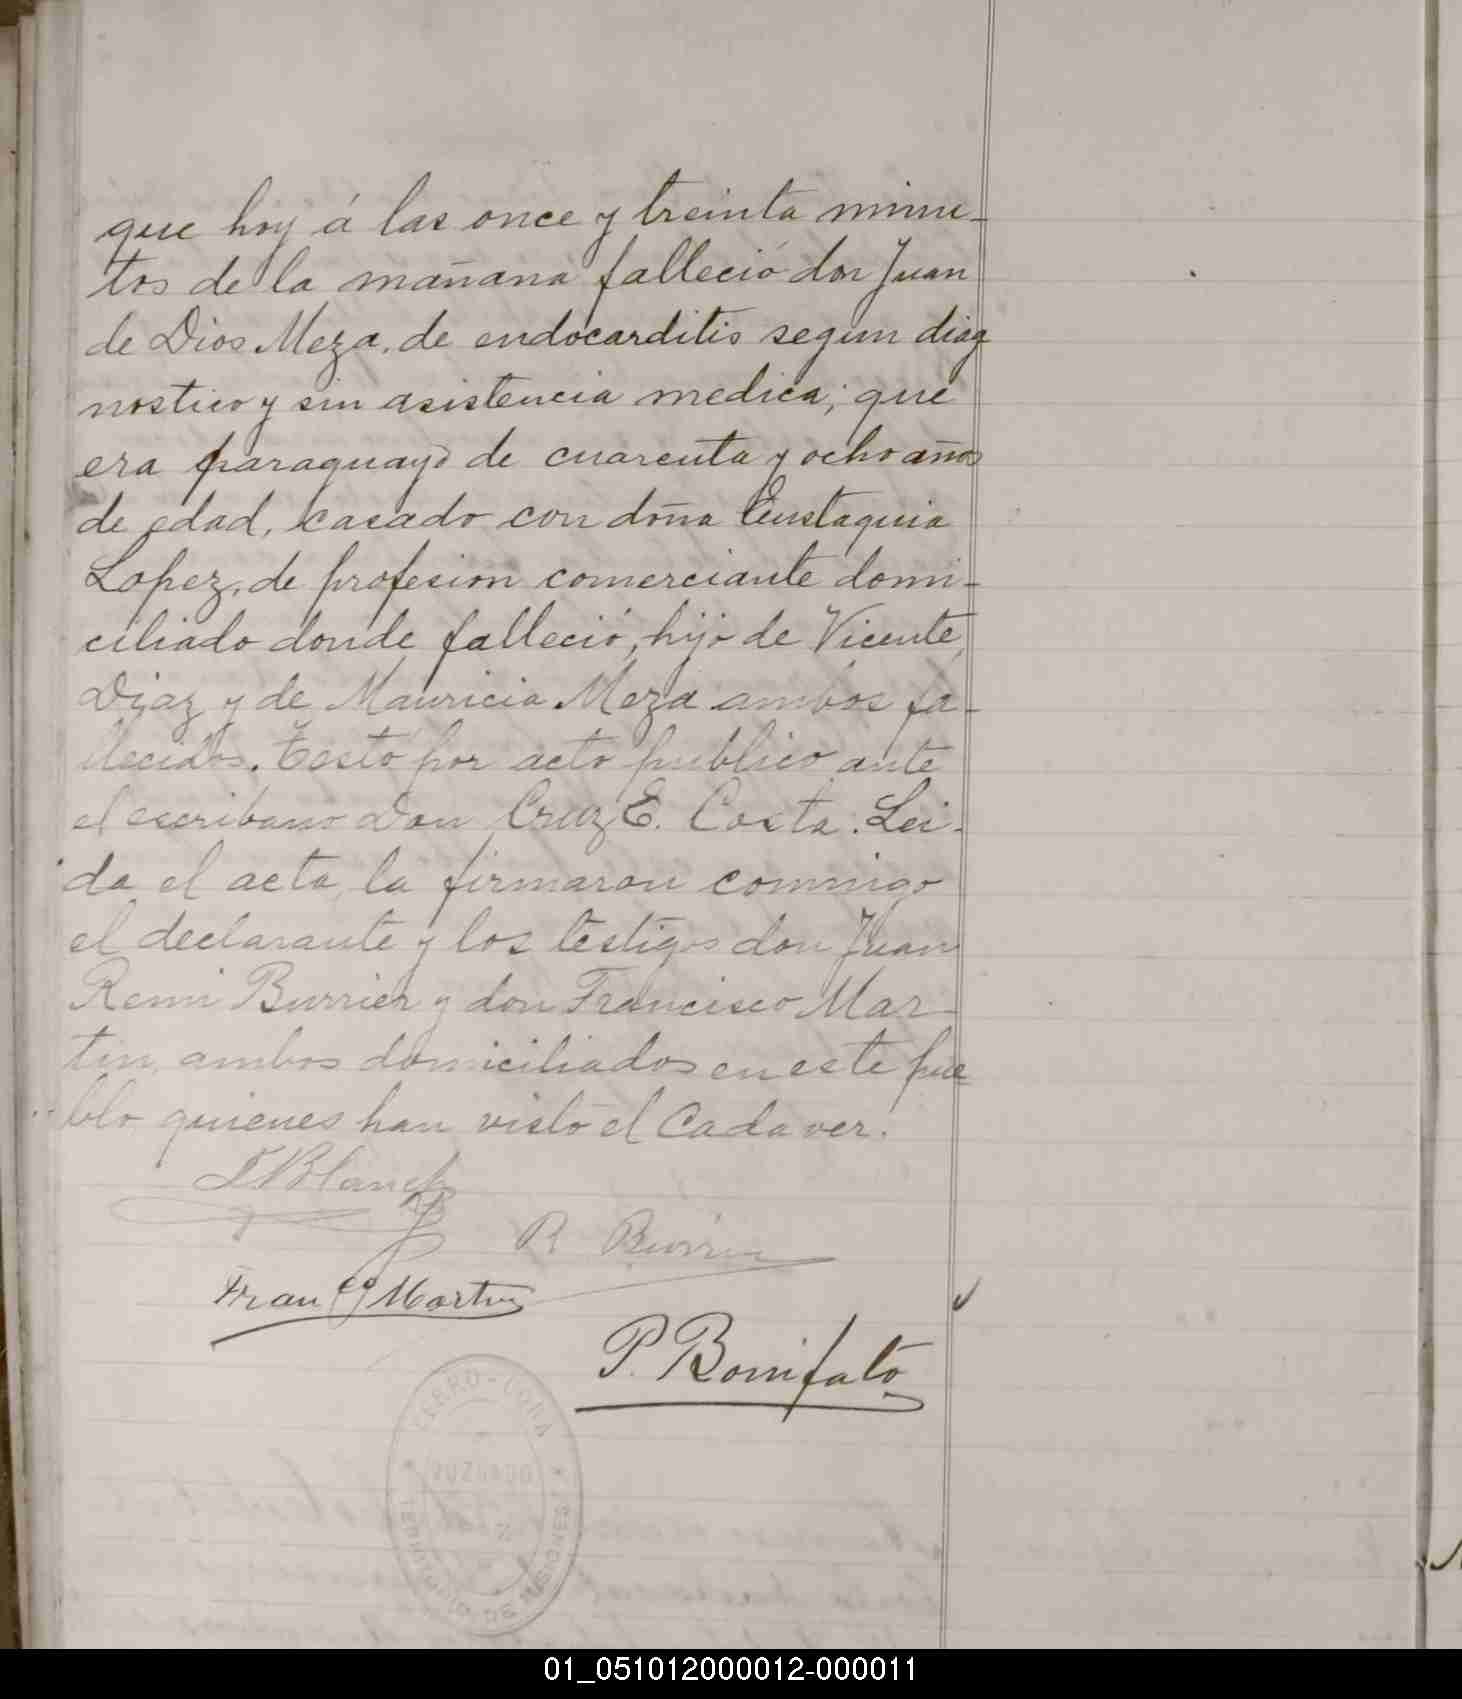 que hoy á las once y treinta minu-
tos de la mañana falleció don Juan
de Dios Meza, de endocarditis segun diag
nostico y sin asistencia medica; que
era paraguayo de cuarenta y ocho años
de edad, casado con doña Eustaquia
Lopez, de profesion comerciante domi-
ciliado donde falleció, hijo de Vicente
Diaz y de Mauricia Meza ambos fa-
llecidos. Testó por acto publico ante
el escribano Don Cruz E. Costa. Lei-
da el acta, la firmaron conmigo
el declarante y los testigos don Juan
Remi Burrier y don Francisco Mar-
tin, ambos domiciliados en este pue
blo quienes han visto el Cadaver.
R Burrier
Franco Martin
P. Bonifato
CERRO-CORA
JUZGADO
TERRITORIO DE MISIONES
01_051012000012-000011